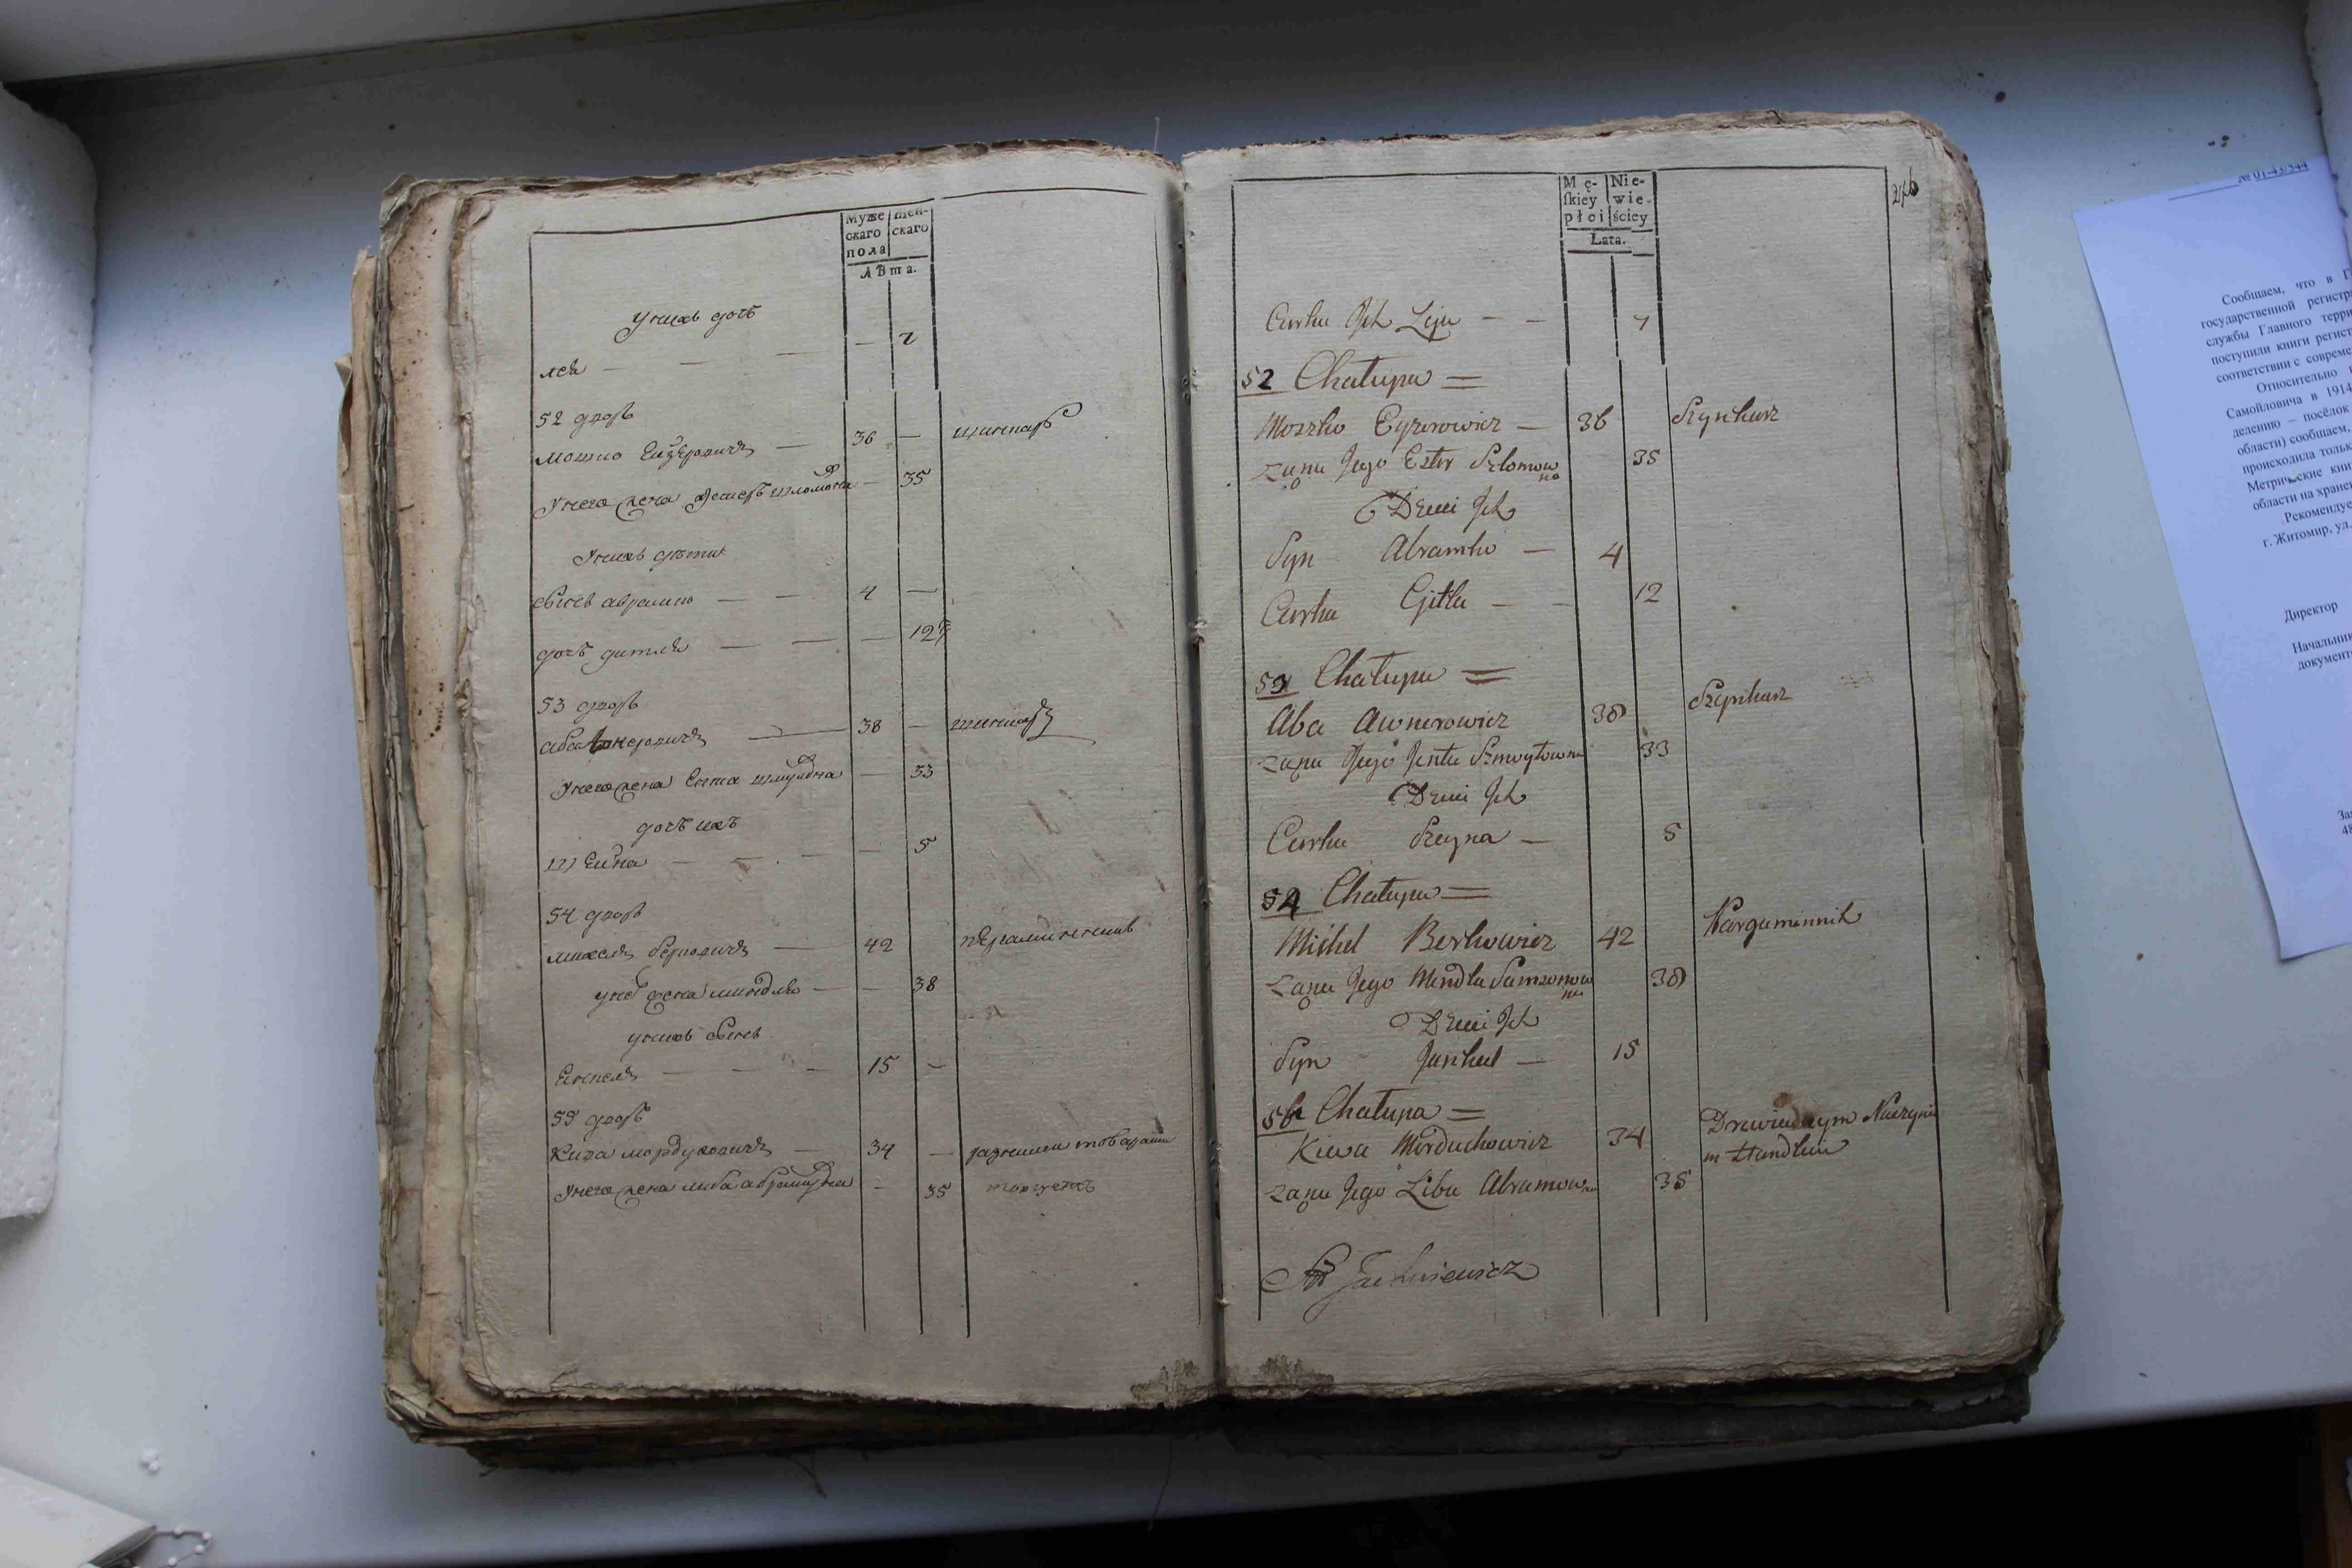 Муже
скаго
пола
жен-
скаго
лѣта.
у нихъ дочь
лея — — — — 7
52 дворъ
мошко Ейзеровичъ — 36 — шинкаръ
у него жена Естеръ шломовна — 35
у нихъ дети
сынъ абрамко — — 4 —
дочь гитля — — — 12
53 дворъ
аба Авнеровичъ — 38 — шинкаръ
у него жена Ента шмулевна — 33
дочь ихъ
шейна — — — — 5
54 дворъ
михель берковичъ — 42
у него жена миндля — — 38
у нихъ сынъ
Енкель — — — 15 —
55 дворъ
Кива мордуховичъ — 34 — разными товарами
у него жена либа абрамовна — 35 торгуетъ
Mę-
skiey
płci
Nie-
wie-
ściey
Lata.
Curka Jch Leja — — 7
52 Chałupa =
Moszko Eyzerowicz — 36 Szynkarz
żona Jego Ester Szlomow
na 35
Dzieci Jch
Syn Abramko — 4
Curka Gitla — — 12
53 Chałupa =
Aba Awnerowicz 38 Szynkarz
żona Jego Jenta Szmoylowna 33
Dzieci Jch
Curka Szeyna — 5
54 Chałupa =
Michel Berkowicz 42 Pargaminnik
żona Jego Mendla Samsonow
na 38
Dzieci Jch
Syn Jankiel — 15
55 Chałupa =
Kiewa Morduchowicz 34 Drewianym Naczyni
m Handluie
żona Jego Liba Abramowna 35
№ 01-43/344
Сообщаем, что в
государственной регистр
службы Главного терри
поступили книги регист
соответствии с совреме
Относительно
Самойловича в 1914
делению – посёлок
области) сообщаем,
происходила тольк
Метрические кни
области на хране
Рекомендуе
г. Житомир, ул.
Директор
Начальни
документ
48